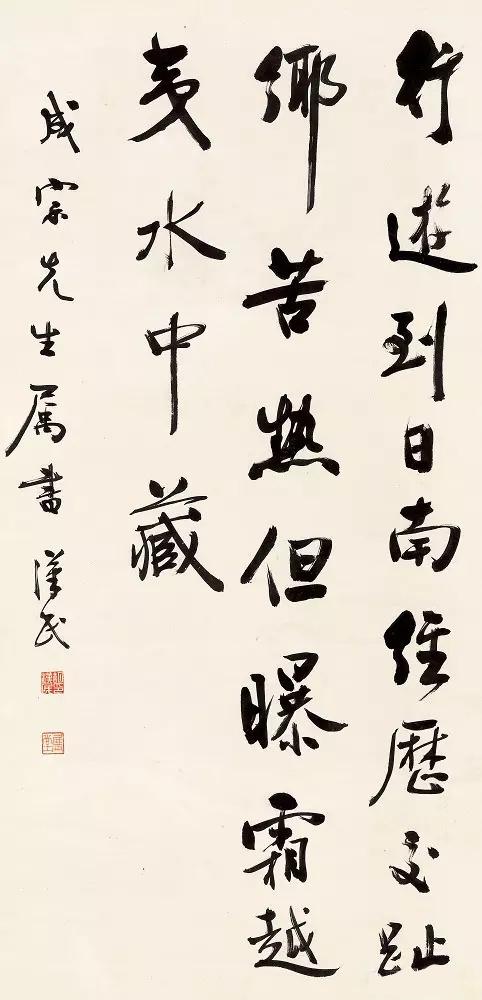 行遊到日南經歷交趾
鄉苦熱但曝霜越
夷水中藏
咸宗先生屬書 漢民